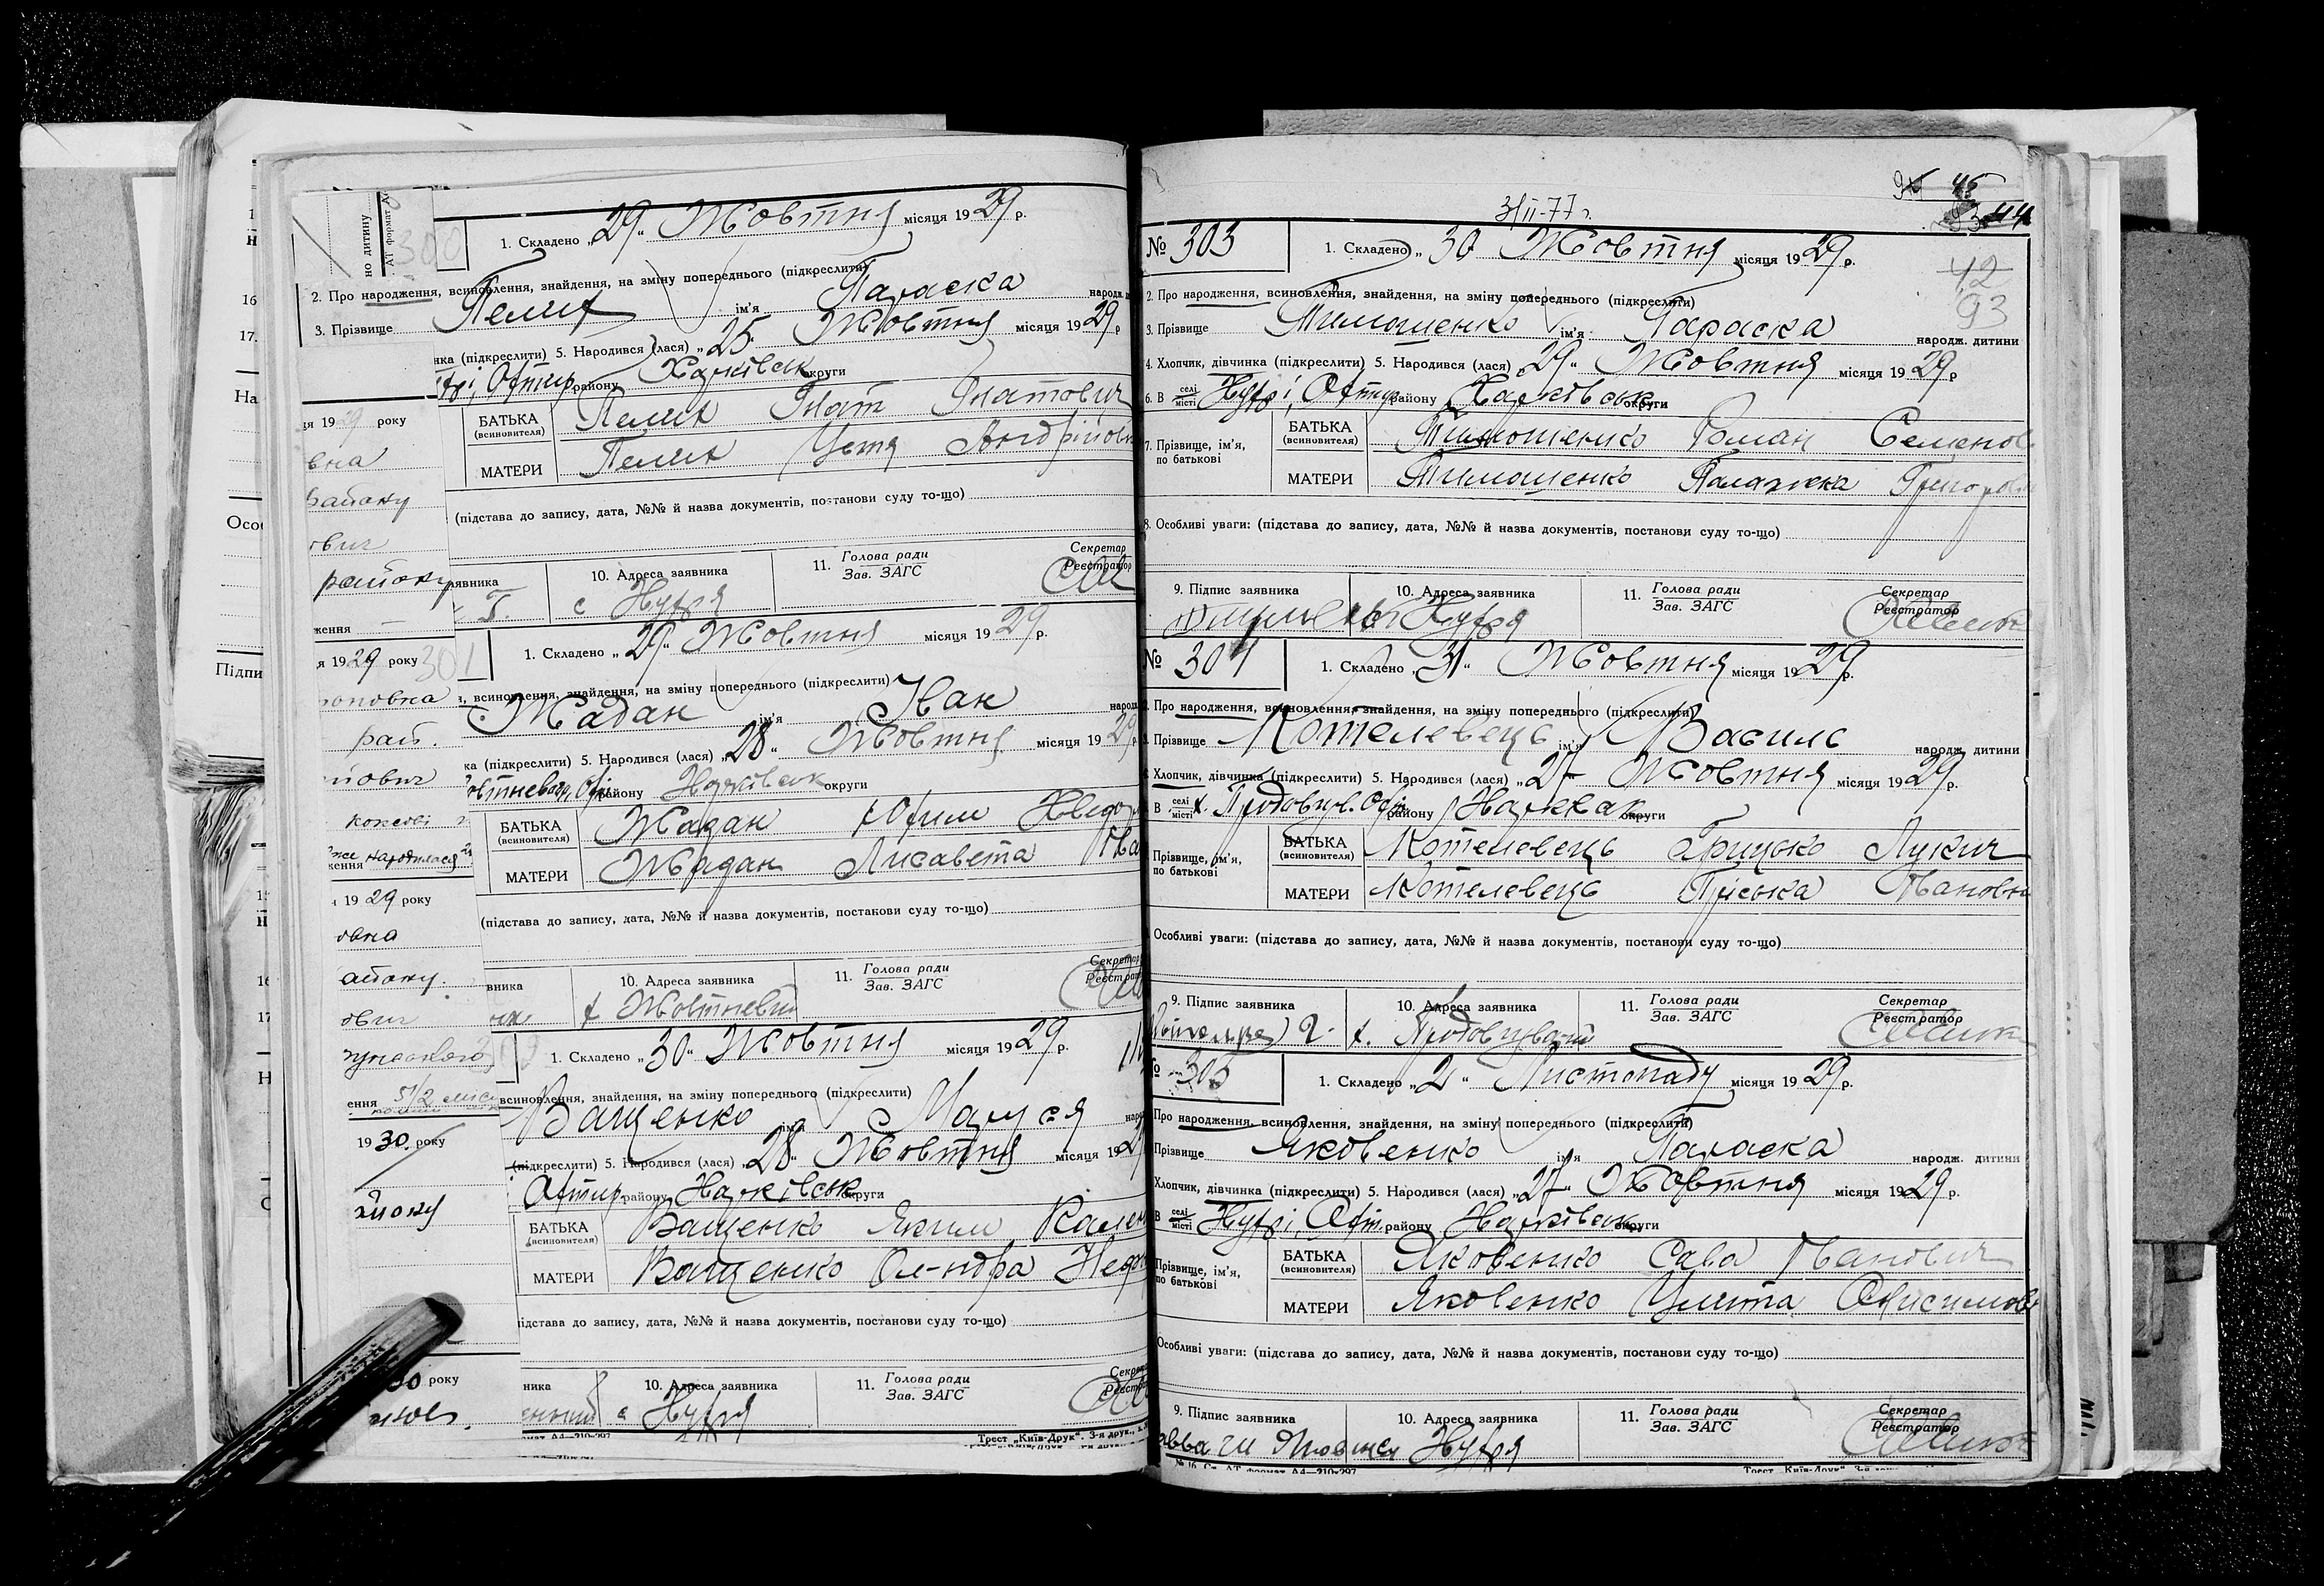 но дитину
АТ формат А
300
1. Складено „29“ Жовтня місяця 1929 р.
2. Про народження, всиновлення, знайдення, на зміну попереднього (підкреслити)
3. Прізвище Пелих ім'я Параска народж.
нка (підкреслити) 5. Народився (лася) „25“ Жовтня місяця 1929 р
Охтир району Харківськ округи
БАТЬКА (всиновителя) Пелих Гнат Гнатович
МАТЕРИ Пелих Устя Андрійовн
(підстава до запису, дата, №№ й назва документів, постанови суду то-що)
явника 10. Адреса заявника 11. Голова ради Зав. ЗАГС Секретар Реєстратор
Т. с Хухря
301
1. Складено „29“ Жовтня місяця 1929 р.
всиновлення, знайдення, на зміну попереднього (підкреслити)
Жадан ім'я Іван народ
ка (підкреслити) 5. Народився (лася) „28“ Жовтня місяця 1929 р
району Харківськ округи
БАТЬКА (всиновителя) Жадан Юхим Хведо
МАТЕРИ Жадан Лисавета Іва
(підстава до запису, дата, №№ й назва документів, постанови суду то-що)
вника 10. Адреса заявника 11. Голова ради Зав. ЗАГС Секретар Реєстрат
х Жовтневий
1. Складено „30“ Жовтня місяця 1929 р.
всиновлення, знайдення, на зміну попереднього (підкреслити)
Ващенко ім'я Маруся наро
(підкреслити) 5. Народився (лася) „28“ Жовтня місяця 1929
Охтир. району Харківськ округи
БАТЬКА (всиновителя) Ващенко Яким Кален
МАТЕРИ Ващенко Ол-ндра Недо
підстава до запису, дата, №№ й назва документів, постанови суду то-що)
ника 10. Адреса заявника 11. Голова ради Зав. ЗАГС Секре Реєстра
с Хухря
Трест „Київ-Друк“. 3-я друк.,
ця 1929 року
вна
району
ович
району
ження —
я 1929 року
рай.
йович
же народилася
ження
1929 року
овна
айону.
ович
ення
1930 року
айону
30 року
16
17.
На
Особ
Підпи
3/II-77 г.
45
44
42
93
№ 303 1. Складено „30 Жовтня місяця 1929 р.
2. Про народження, всиновлення, знайдення, на зміну попереднього (підкреслити)
3. Прізвище Тимошенко ім'я Параска народж. дитини
4. Хлопчик, дівчинка (підкреслити) 5. Народився (лася) „29“ Жовтня місяця 1929 р
6. В селі місті Хухрі, Охтир району Харківськ округи
7. Прізвище, ім'я, по батькові БАТЬКА (всиновителя) Тимошенко Роман Семенов
МАТЕРИ Тимошенко Палажка Григоров
8. Особливі уваги: (підстава до запису, дата, №№ й назва документів, постанови суду то-що)
9. Підпис заявника 10. Адреса заявника 11. Голова ради Зав. ЗАГС Секретар Реєстратор
Хухря
№ 304 1. Складено „31“ Жовтня місяця 1929 р.
Про народження, всиновлення, знайдення, на зміну попереднього (підкреслити)
Прізвище Котелевець ім'я Василь народж. дитини
Хлопчик, дівчинка (підкреслити) 5. Народився (лася) „27“ Жовтня місяця 1929 р.
В селі місті району округи
Прізвище, ім'я, по батькові БАТЬКА (всиновителя) Котелевець Грицько Лукич
МАТЕРИ Котелевець Пріська Івановн
Особливі уваги: (підстава до запису, дата, №№ й назва документів, постанови суду то-що)
9. Підпис заявника 10. Адреса заявника 11. Голова ради Зав. ЗАГС Секретар Реєстратор
№ 305 1. Складено „2“ Листопаду місяця 1929 р.
Про народження, всиновлення, знайдення, на зміну попереднього (підкреслити)
Прізвище Яковенко ім'я Параска народж. дитини
Хлопчик, дівчинка (підкреслити) 5. Народився (лася) „27“ Жовтня місяця 1929 р.
В селі місті Хухрі, Охт. району Харківськ округи
Прізвище, ім'я, по батькові БАТЬКА (всиновителя) Яковенко Сава Іванович
МАТЕРИ Яковенко Улита Онисимов
Особливі уваги: (підстава до запису, дата, №№ й назва документів, постанови суду то-що)
9. Підпис заявника 10. Адреса заявника 11. Голова ради Зав. ЗАГС Секретар Реєстратор
Хухря
№ 16. Ст. АТ формат А4—210×297 Трест „Київ-Друк“ 3-я